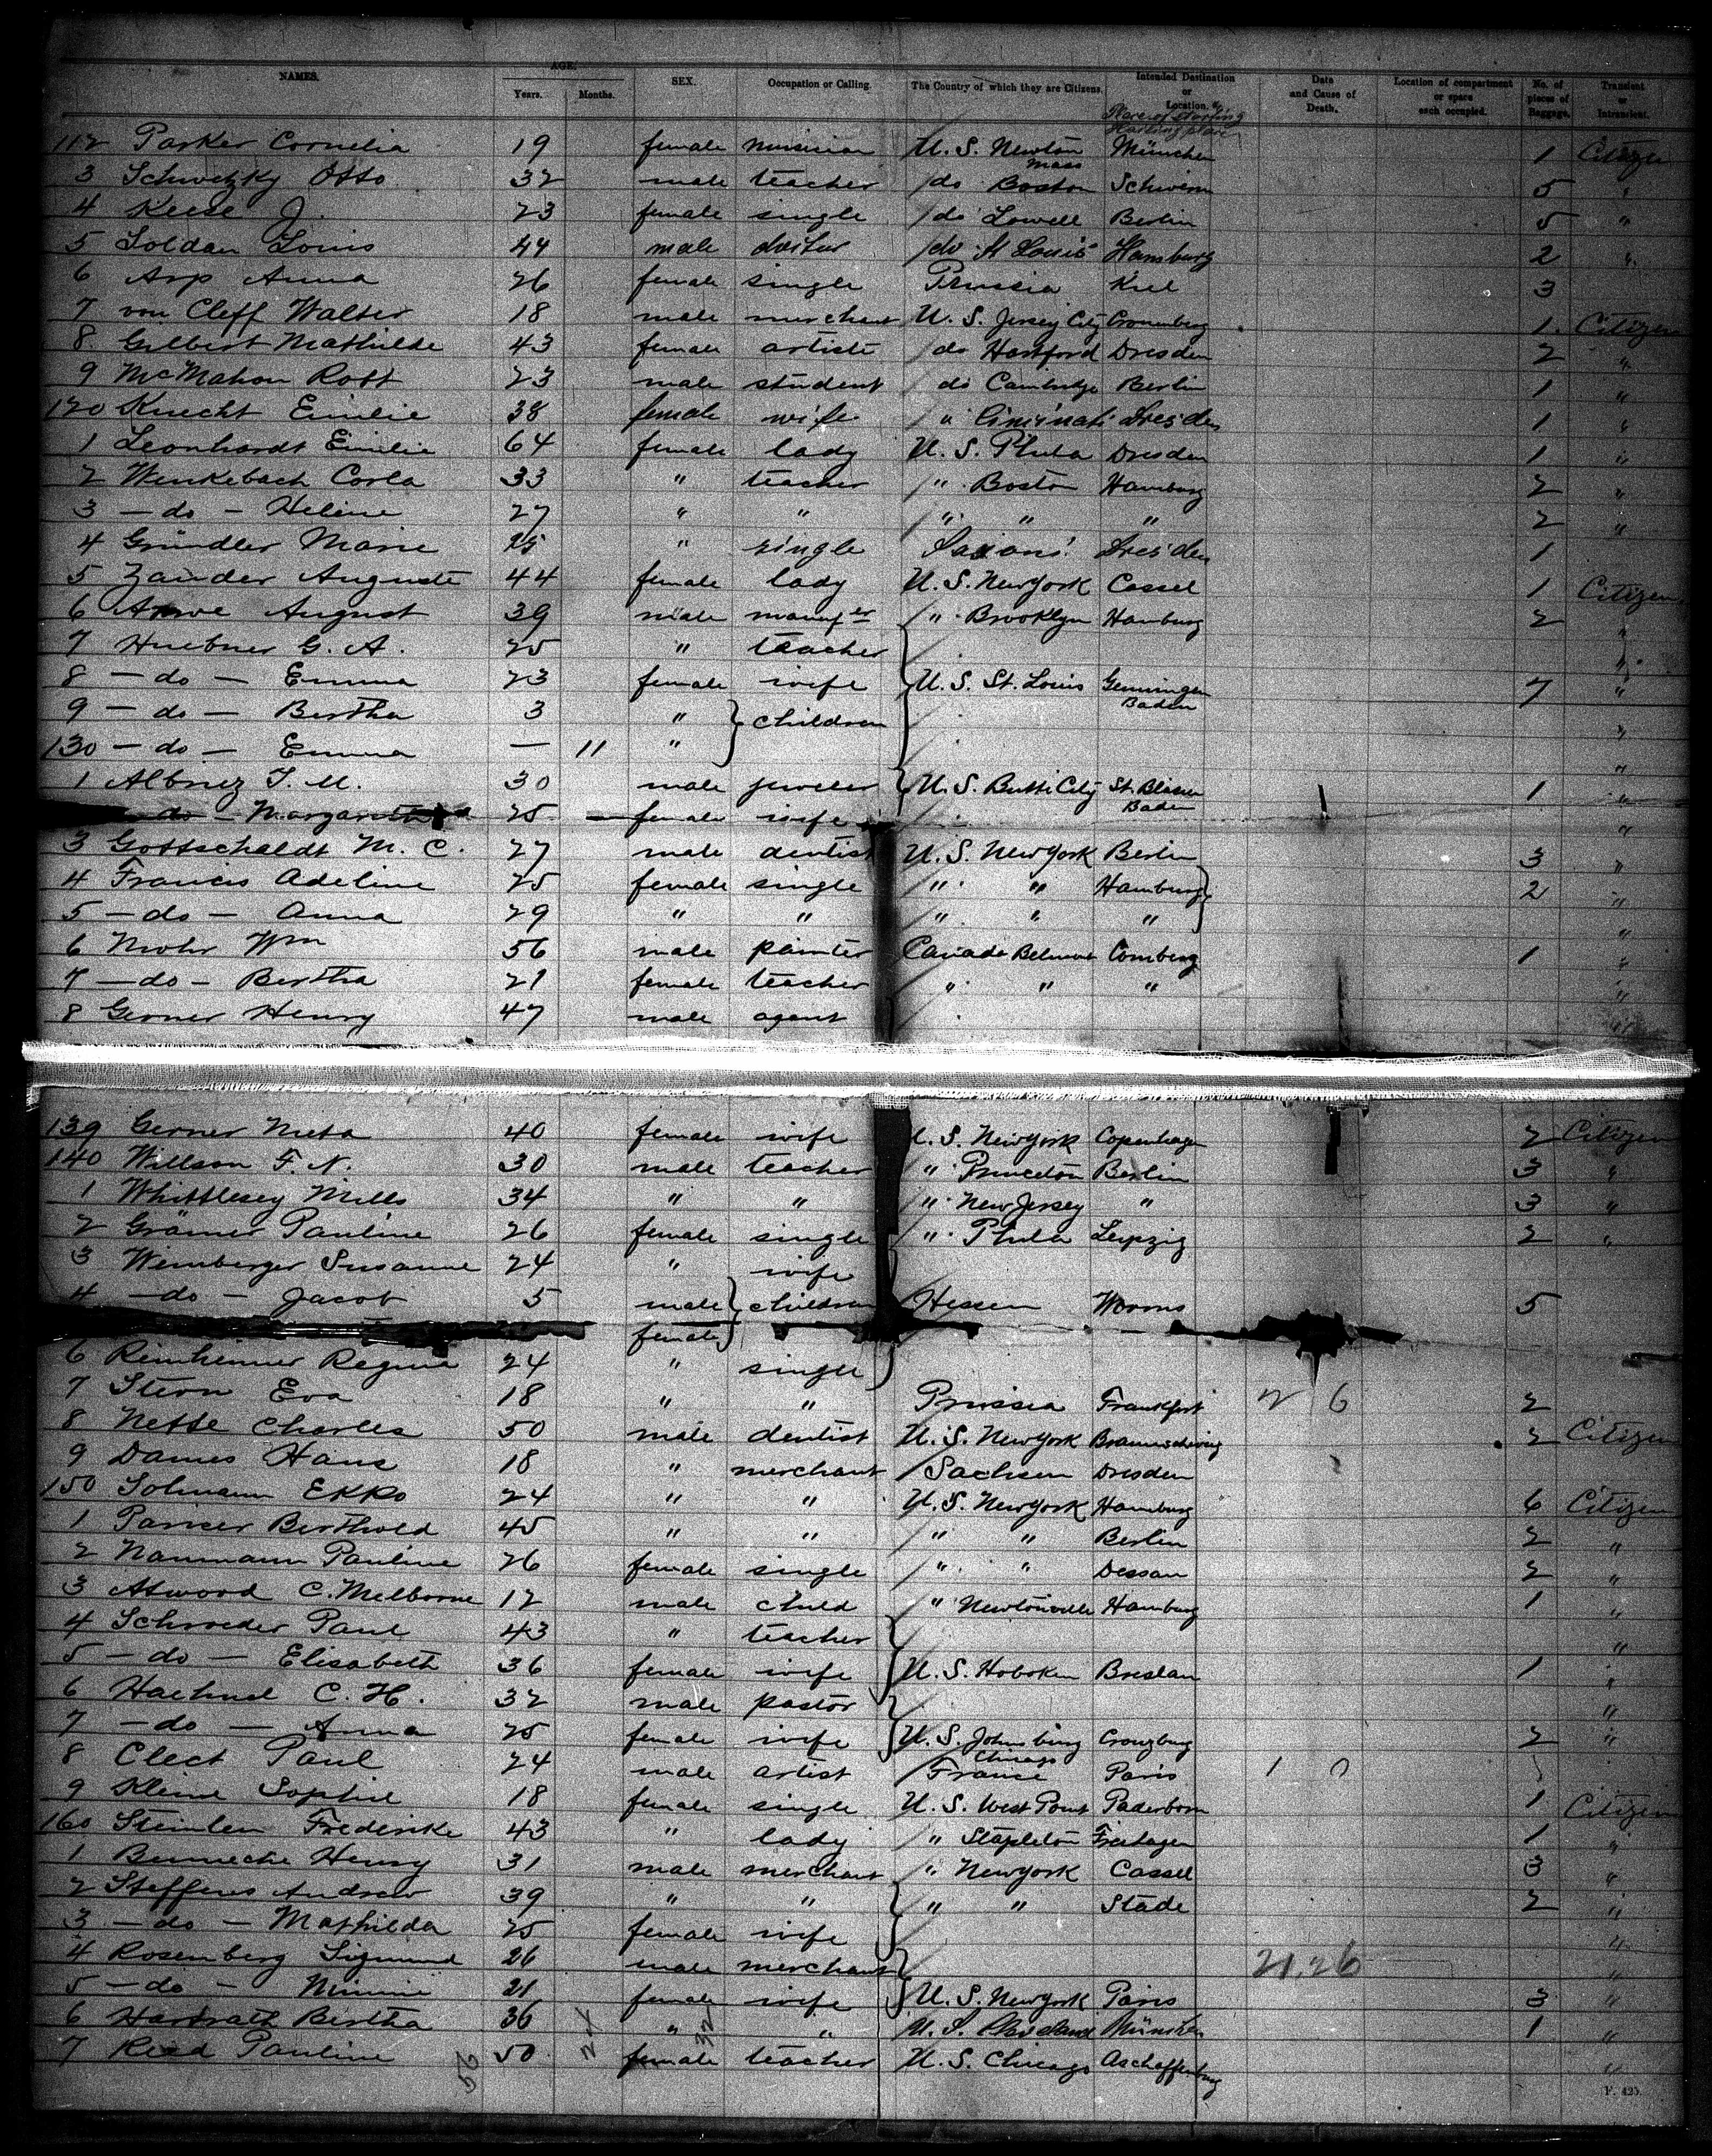 NAMES. AGE. Years. Months. SEX. Occupation or Calling. The Country of which they are Citizens. Intended Destination or Location. Date and Cause of Death. Location of compartment or space each occupied. No. of pieces of Baggage. Transient or Intransient.
Place of starting
112 Parker Cornelia 19 female musician U. S. Newton Mass München 1 Citizen
3 Schwetzky Otto 32 male teacher do Boston Schwerin 5 "
4 Keese J. 23 female single do Lowell Berlin 5 "
5 Soldan Louis 44 male do St Louis Hamburg 2 "
6 Arp Anna 26 female single Prussia Kiel 3
7 von Cleff Walter 18 male merchant U. S. Jersey City Cronenberg 1 Citizen
8 Gilbert Mathilde 43 female artiste do Hartford Dresden 2 "
9 McMahon Robt 23 male student do Cambridge Berlin 1 "
120 Knecht Emilie 38 female wife " Cincinati Dresden 1 "
1 Leonhardt Emilie 64 female lady U. S. Phila Dresden 1 "
2 Wenkebach Carla 33 " teacher " Boston Hamburg 2 "
3 — do — Helene 27 " " " " " 2 "
4 Gründler Marie 25 " single Dresden 1
5 Zander Auguste 44 female lady U. S. New York Cassel 1 Citizen
6 August 39 male manufer " Brooklyn Hamburg 2 "
7 Huebner G. A. 25 " teacher "
8 — do — Emma 23 female wife U. S. St. Louis Gemmingen Baden 7 "
9 — do — Bertha 3 " children "
130 — do — Emma — 11 " "
1 Albiez J. M. 30 male jeweler U. S. Butte City St. Blasien Baden 1 "
— do — Margaretha 25 female wife "
3 Gottschaldt M. C. 27 male dentist U. S. New York Berlin 3 "
4 Francis Adeline 25 female single " " Hamburg 2 "
5 — do — Anna 29 " " " " " "
6 Mohr Wm 56 male painter Canada Belmont Comberg 1 "
7 — do — Bertha 21 female teacher " " " "
8 Gerner Henry 47 male agent "
139 Gerner Meta 40 female wife U. S. New York Copenhagen 2 Citizen
140 Willson F. N. 30 male teacher " Princeton Berlin 3 "
1 Whittlesey Mills 34 " " " New Jersey " 3 "
2 Grämer Pauline 26 female single " Phila Leipzig 2 "
3 Weinberger Susanne 24 " wife
4 — do — Jacob 5 male children Hessen Worms 5
female
6 Reinheimer Regine 24 " single
7 Stern Eva 18 " " Prussia Frankfort 2 6 2
8 Nette Charles 50 male dentist U. S. New York Braunschweig 2 Citizen
9 Dames Hans 18 " merchant Sachsen Dresden
150 Solmann Ekko 24 " " U. S. New York Hamburg 6 Citizen
1 Pariser Berthold 45 " " " " Berlin 2 "
2 Naumann Pauline 26 female single " " Dessau 2 "
3 Atwood C. Melborne 12 male child " Newtonville Hamburg 1 "
4 Schroeder Paul 43 " teacher "
5 — do — Elisabeth 36 female wife U. S. Hoboken Breslau 1 "
6 C. H. 32 male pastor "
7 — do — Anna 25 female wife U. S. Johnsburg Chicago 2 "
8 Clect Paul 24 male artist France Paris 1 0
9 Kleine Sophie 18 female single U. S. West Point Paderborn 1 Citizen
160 Steinlen Frederike 43 " lady " Stapleton 1 "
1 Bennecke Henry 31 male merchant " New York Cassel 3 "
2 Steffens Andrew 39 " " " " Stade 2 "
3 — do — Mathilda 25 female wife "
4 Rosenberg Sigmund 26 male merchant 21.26 "
5 — do — Minnie 21 female wife U. S. New York Paris 3 "
6 Hardrath Bertha 36 " " U. S. Cleveland München 1 "
7 Reed Pauline 50 female teacher U. S. Chicago Aschaffenburg "
F. 425.